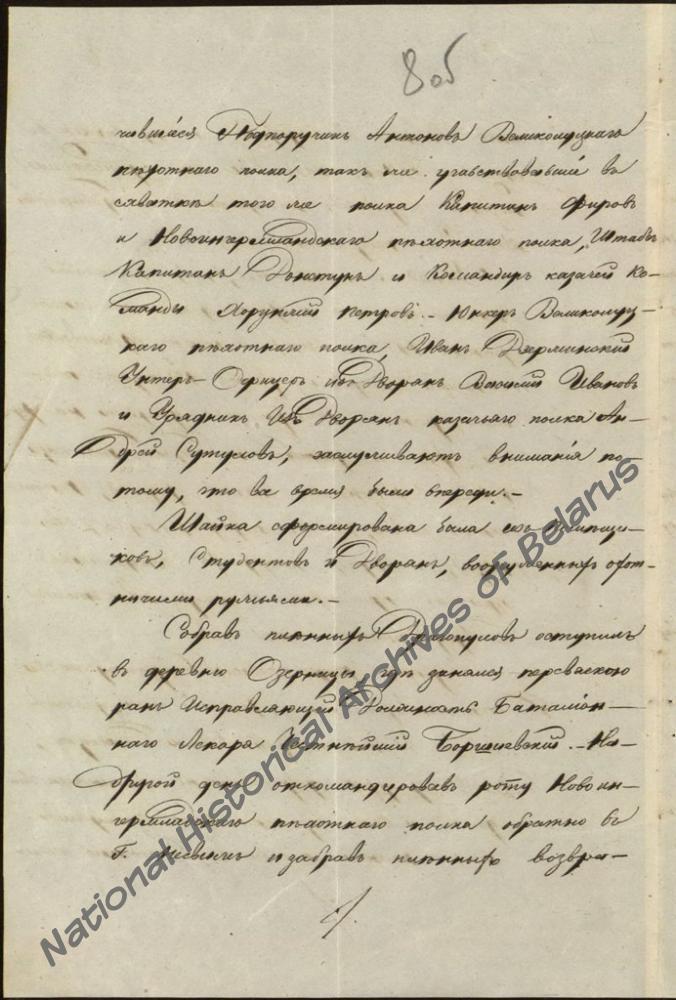 8 об
чившася Подпоручикъ Антоновъ Великолуцкаго
пѣхотнаго полка, такъ же учавствовавшій въ
схваткѣ того же полка Капитанъ Фировъ
и Новоингермландскаго пѣхотнаго полка, Штабсъ
Капитанъ и Командиръ казачей Ко-
манды Хорунжій Петровъ. – Юнкеръ Великолуц-
каго пѣхотнаго полка, Иванъ Дзерминскій
Унтеръ-Офицеръ изъ Дворянъ Василій Ивановъ
и Урядникъ изъ Дворянъ казачьяго полка Ан-
дрей Сутуловъ, заслуживаютъ вниманія по-
тому, что все время были впереди. –
Шайка сформирована была изъ помѣщи-
ковъ, Студентовъ и Дворянъ, вооруженныхъ охот-
ничими ружьями. –
Собравъ плѣнныхъ оступилъ
въ деревню Озерницы гдѣ занялся перевязкою
ранъ Исправляющій Должность Баталіон-
наго Лекаря Боршевскій. – На
другой день откомандировавъ роту Новоин-
германландскаго пѣхотнаго полка обратно въ
Г. и забравъ плѣнныхъ возвра-
National Historical Archives of Belarus